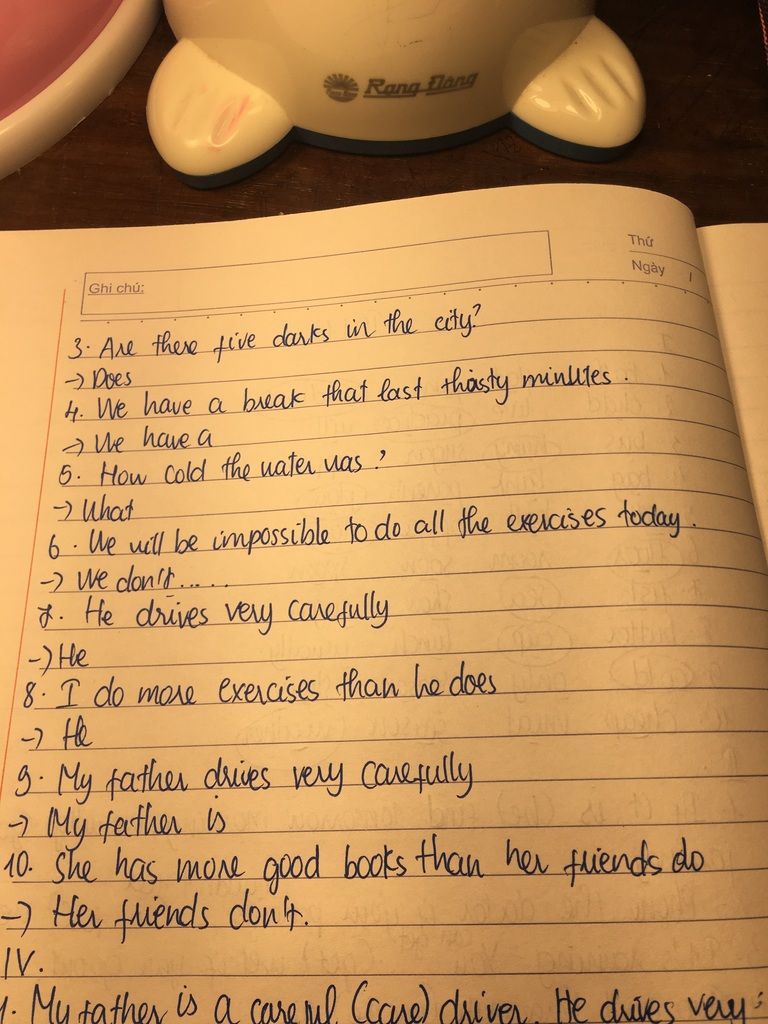 Rạng Đông
Thứ
Ghi chú:
Ngày
3. Are there five darks in the city?
-> Does
4. We have a break that last thirty minutes.
-> We have a
5. How cold the water was?
-> What
6. We will be impossible to do all the exercises today.
-> we don't.....
7. He drives very carefully
-> He
8. I do more exercises than he does
-> He
9. My father drives very carefully
-> My father is
10. She has more good books than her friends do
-> Her friends don't.
IV.
1. My father is a careful (care) driver. He drives very